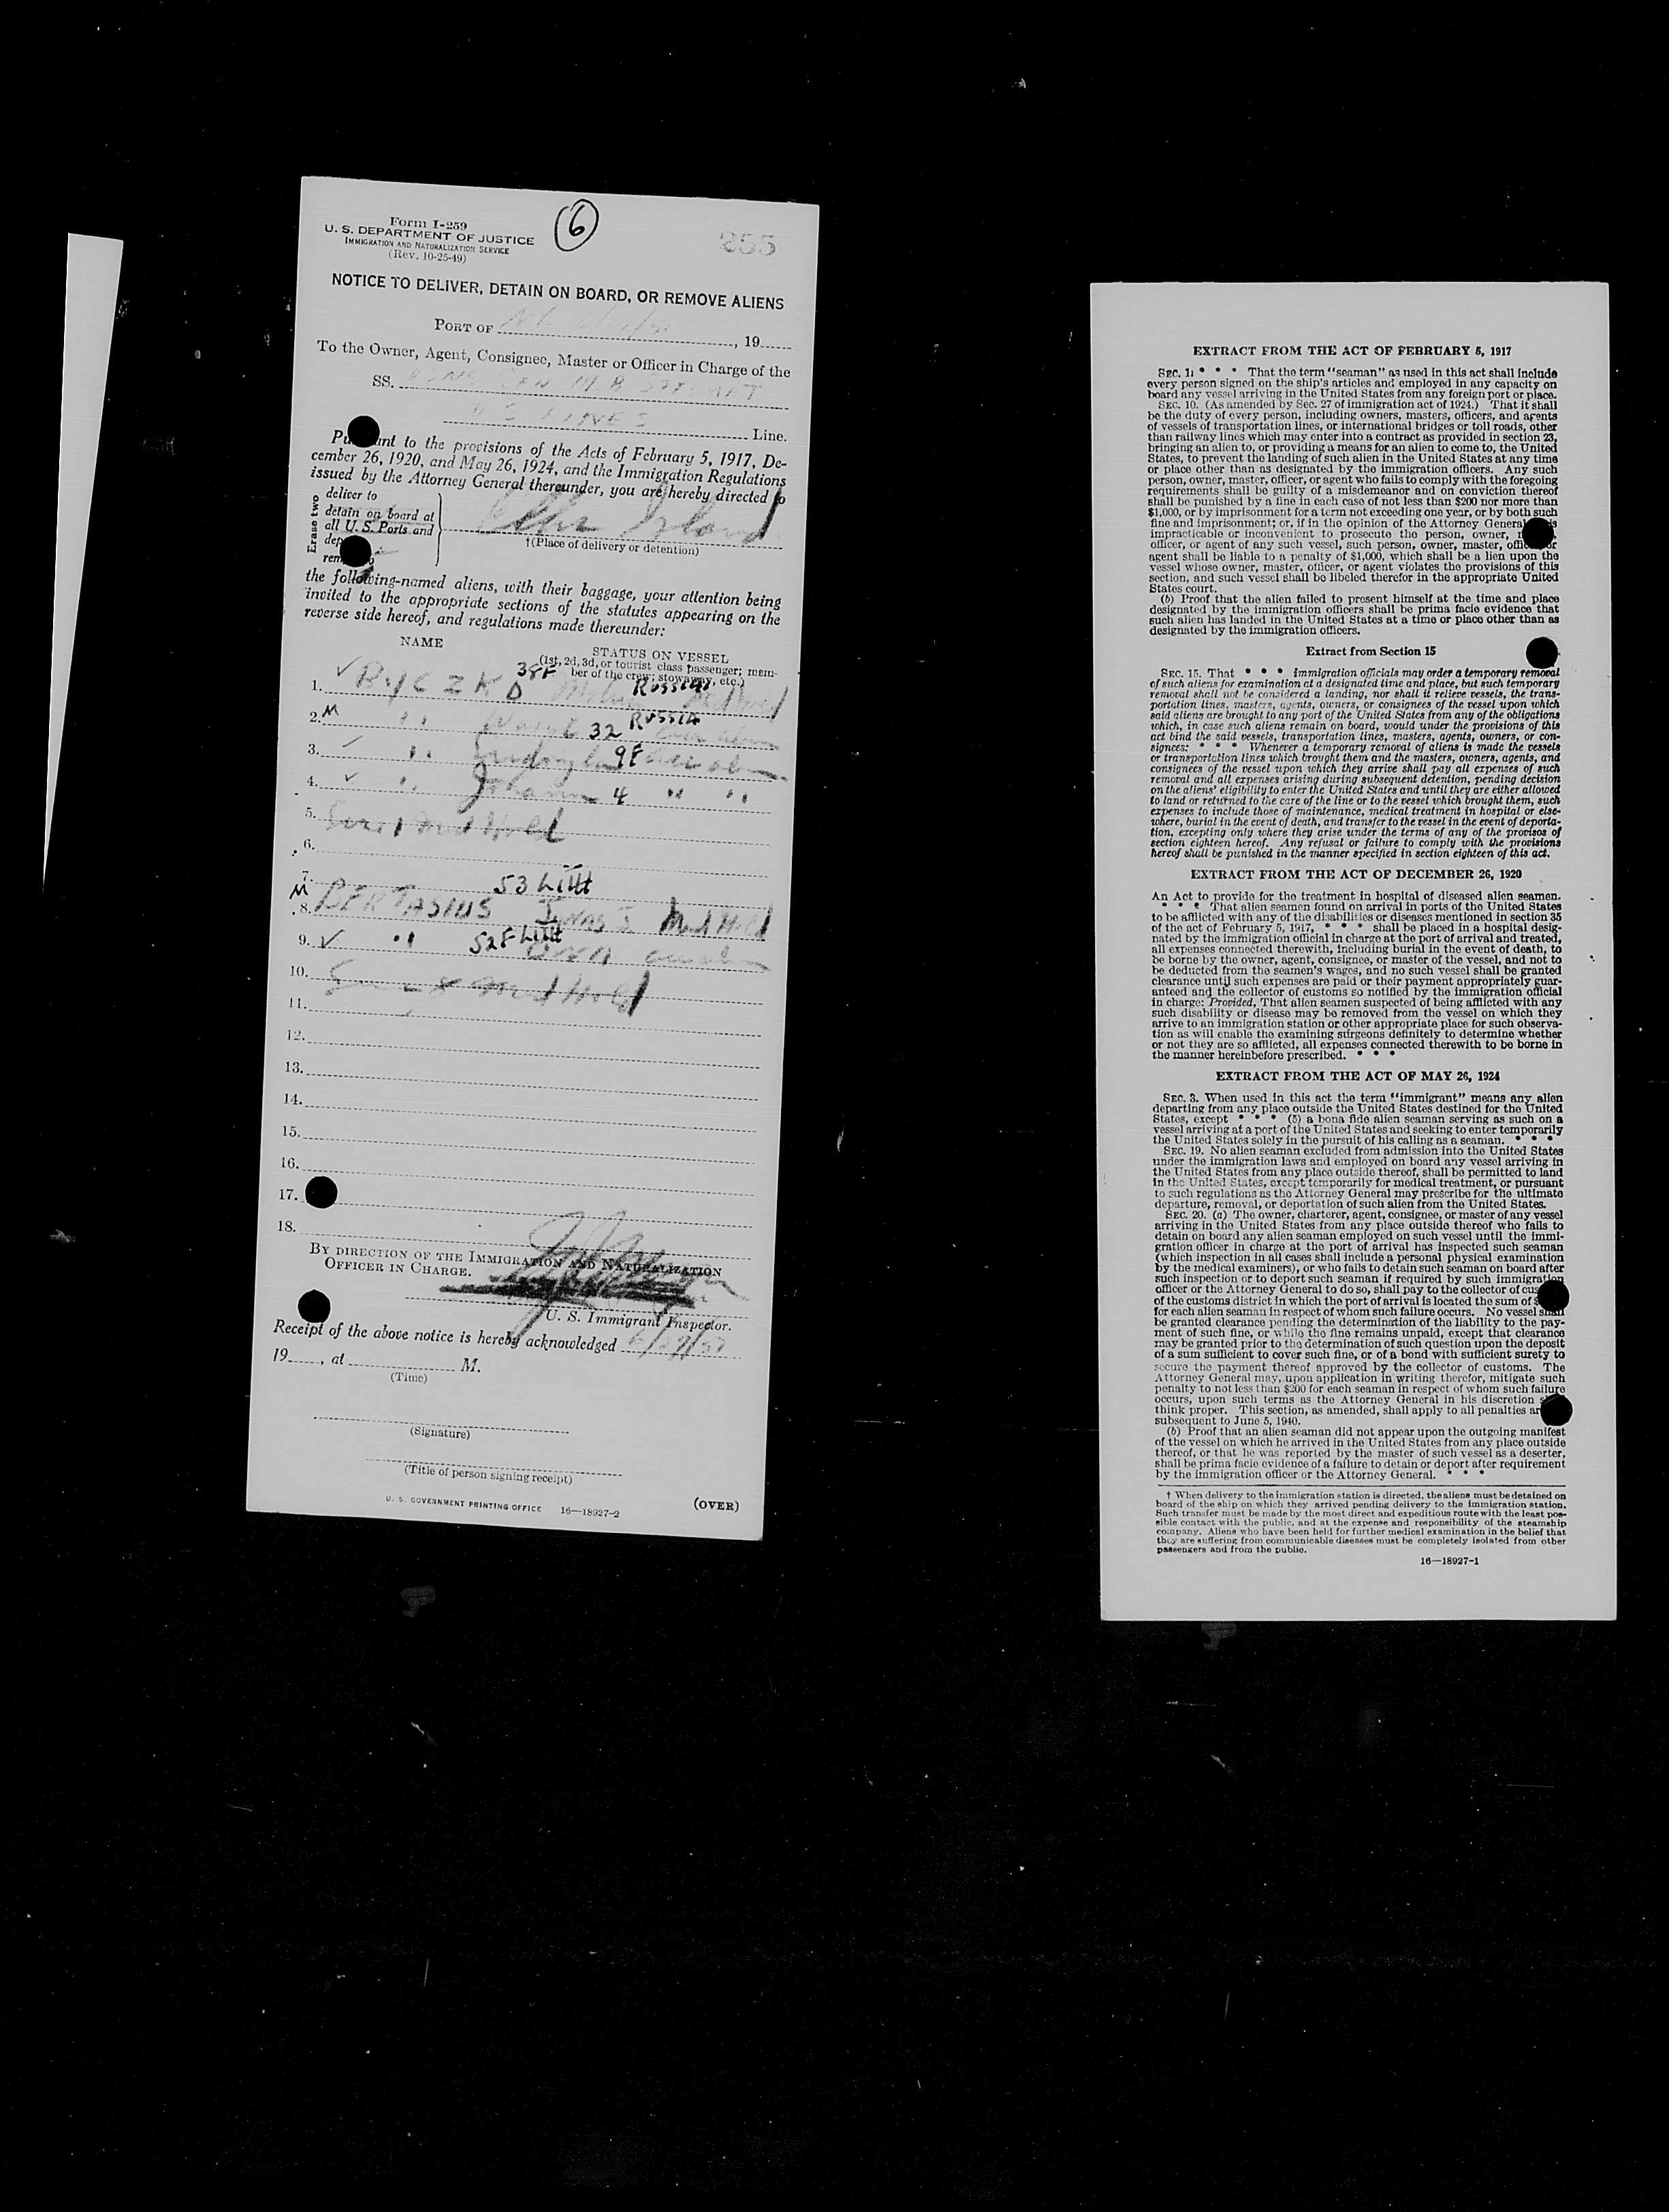 Form I-259
U. S. DEPARTMENT OF JUSTICE
IMMIGRATION AND NATURALIZATION SERVICE
(Rev. 10-25-49)
6
255
NOTICE TO DELIVER, DETAIN ON BOARD, OR REMOVE ALIENS
PORT OF , 19
To the Owner, Agent, Consignee, Master or Officer in Charge of the
SS. GEN M. B STEWART
U S LINES Line.
Pu ant to the provisions of the Acts of February 5, 1917, De-
cember 26, 1920, and May 26, 1924, and the Immigration Regulations
issued by the Attorney General thereunder, you are hereby directed to
Erase two
deliver to
detain on board at
all U. S. Ports and
dep
rem
Ellis Island
†(Place of delivery or detention)
the following-named aliens, with their baggage, your attention being
invited to the appropriate sections of the statutes appearing on the
reverse side hereof, and regulations made thereunder:
NAME
STATUS ON VESSEL
(1st, 2d, 3d, or tourist class passenger; mem-
ber of the crew; stowaway, etc.)
1. ✓ BYCZKO 38F Russia Med Hold
2. M " 32 Russia
3. ✓ " 9F
4. ✓ " Johann 4 " "
5. Med Hold
6.
7. 53 Lith
8. M BERTASIUS JONAS Med Hold
9. ✓ " 52F Lith
10. Med Hold
11.
12.
13.
14.
15.
16.
17.
18.
BY DIRECTION OF THE IMMIGRATION AND NATURALIZATION
OFFICER IN CHARGE.
U. S. Immigrant Inspector.
Receipt of the above notice is hereby acknowledged
19 , at M.
(Time)
(Signature)
(Title of person signing receipt)
U. S. GOVERNMENT PRINTING OFFICE 16—18927-2
(OVER)
EXTRACT FROM THE ACT OF FEBRUARY 5, 1917
SEC. 1: * * * That the term "seaman" as used in this act shall include
every person signed on the ship's articles and employed in any capacity on
board any vessel arriving in the United States from any foreign port or place.
SEC. 10. (As amended by Sec. 27 of immigration act of 1924.) That it shall
be the duty of every person, including owners, masters, officers, and agents
of vessels of transportation lines, or international bridges or toll roads, other
than railway lines which may enter into a contract as provided in section 23,
bringing an alien to, or providing a means for an alien to come to, the United
States, to prevent the landing of such alien in the United States at any time
or place other than as designated by the immigration officers. Any such
person, owner, master, officer, or agent who fails to comply with the foregoing
requirements shall be guilty of a misdemeanor and on conviction thereof
shall be punished by a fine in each case of not less than $200 nor more than
$1,000, or by imprisonment for a term not exceeding one year, or by both such
fine and imprisonment; or, if in the opinion of the Attorney General
impracticable or inconvenient to prosecute the person, owner,
officer, or agent of any such vessel, such person, owner, master, officer or
agent shall be liable to a penalty of $1,000, which shall be a lien upon the
vessel whose owner, master, officer, or agent violates the provisions of this
section, and such vessel shall be libeled therefor in the appropriate United
States court.
(b) Proof that the alien failed to present himself at the time and place
designated by the immigration officers shall be prima facie evidence that
such alien has landed in the United States at a time or place other than as
designated by the immigration officers.
Extract from Section 15
SEC. 15. That * * * immigration officials may order a temporary removal
of such aliens for examination at a designated time and place, but such temporary
removal shall not be considered a landing, nor shall it relieve vessels, the trans-
portation lines, masters, agents, owners, or consignees of the vessel upon which
said aliens are brought to any port of the United States from any of the obligations
which, in case such aliens remain on board, would under the provisions of this
act bind the said vessels, transportation lines, masters, agents, owners, or con-
signees: * * * Whenever a temporary removal of aliens is made the vessels
or transportation lines which brought them and the masters, owners, agents, and
consignees of the vessel upon which they arrive shall pay all expenses of such
removal and all expenses arising during subsequent detention, pending decision
on the aliens' eligibility to enter the United States and until they are either allowed
to land or returned to the care of the line or to the vessel which brought them, such
expenses to include those of maintenance, medical treatment in hospital or else-
where, burial in the event of death, and transfer to the vessel in the event of deporta-
tion, excepting only where they arise under the terms of any of the provisos of
section eighteen hereof. Any refusal or failure to comply with the provisions
hereof shall be punished in the manner specified in section eighteen of this act.
EXTRACT FROM THE ACT OF DECEMBER 26, 1920
An Act to provide for the treatment in hospital of diseased alien seamen.
* * * That alien seamen found on arrival in ports of the United States
to be afflicted with any of the disabilities or diseases mentioned in section 35
of the act of February 5, 1917, * * * shall be placed in a hospital desig-
nated by the immigration official in charge at the port of arrival and treated,
all expenses connected therewith, including burial in the event of death, to
be borne by the owner, agent, consignee, or master of the vessel, and not to
be deducted from the seamen's wages, and no such vessel shall be granted
clearance until such expenses are paid or their payment appropriately guar-
anteed and the collector of customs so notified by the immigration official
in charge: Provided, That alien seamen suspected of being afflicted with any
such disability or disease may be removed from the vessel on which they
arrive to an immigration station or other appropriate place for such observa-
tion as will enable the examining surgeons definitely to determine whether
or not they are so afflicted, all expenses connected therewith to be borne in
the manner hereinbefore prescribed. * * *
EXTRACT FROM THE ACT OF MAY 26, 1924
SEC. 3. When used in this act the term "immigrant" means any alien
departing from any place outside the United States destined for the United
States, except * * * (5) a bona fide alien seaman serving as such on a
vessel arriving at a port of the United States and seeking to enter temporarily
the United States solely in the pursuit of his calling as a seaman. * * *
SEC. 19. No alien seaman excluded from admission into the United States
under the immigration laws and employed on board any vessel arriving in
the United States from any place outside thereof, shall be permitted to land
in the United States, except temporarily for medical treatment, or pursuant
to such regulations as the Attorney General may prescribe for the ultimate
departure, removal, or deportation of such alien from the United States.
SEC. 20. (a) The owner, charterer, agent, consignee, or master of any vessel
arriving in the United States from any place outside thereof who fails to
detain on board any alien seaman employed on such vessel until the immi-
gration officer in charge at the port of arrival has inspected such seaman
(which inspection in all cases shall include a personal physical examination
by the medical examiners), or who fails to detain such seaman on board after
such inspection or to deport such seaman if required by such immigration
officer or the Attorney General to do so, shall pay to the collector of cus
of the customs district in which the port of arrival is located the sum of $
for each alien seaman in respect of whom such failure occurs. No vessel shall
be granted clearance pending the determination of the liability to the pay-
ment of such fine, or while the fine remains unpaid, except that clearance
may be granted prior to the determination of such question upon the deposit
of a sum sufficient to cover such fine, or of a bond with sufficient surety to
secure the payment thereof approved by the collector of customs. The
Attorney General may, upon application in writing therefor, mitigate such
penalty to not less than $200 for each seaman in respect of whom such failure
occurs, upon such terms as the Attorney General in his discretion s
think proper. This section, as amended, shall apply to all penalties ar
subsequent to June 5, 1940.
(b) Proof that an alien seaman did not appear upon the outgoing manifest
of the vessel on which he arrived in the United States from any place outside
thereof, or that he was reported by the master of such vessel as a deserter,
shall be prima facie evidence of a failure to detain or deport after requirement
by the immigration officer or the Attorney General. * * *
† When delivery to the immigration station is directed, the aliens must be detained on
board of the ship on which they arrived pending delivery to the immigration station.
Such transfer must be made by the most direct and expeditious route with the least pos-
sible contact with the public, and at the expense and responsibility of the steamship
company. Aliens who have been held for further medical examination in the belief that
they are suffering from communicable diseases must be completely isolated from other
passengers and from the public.
16—18927-1